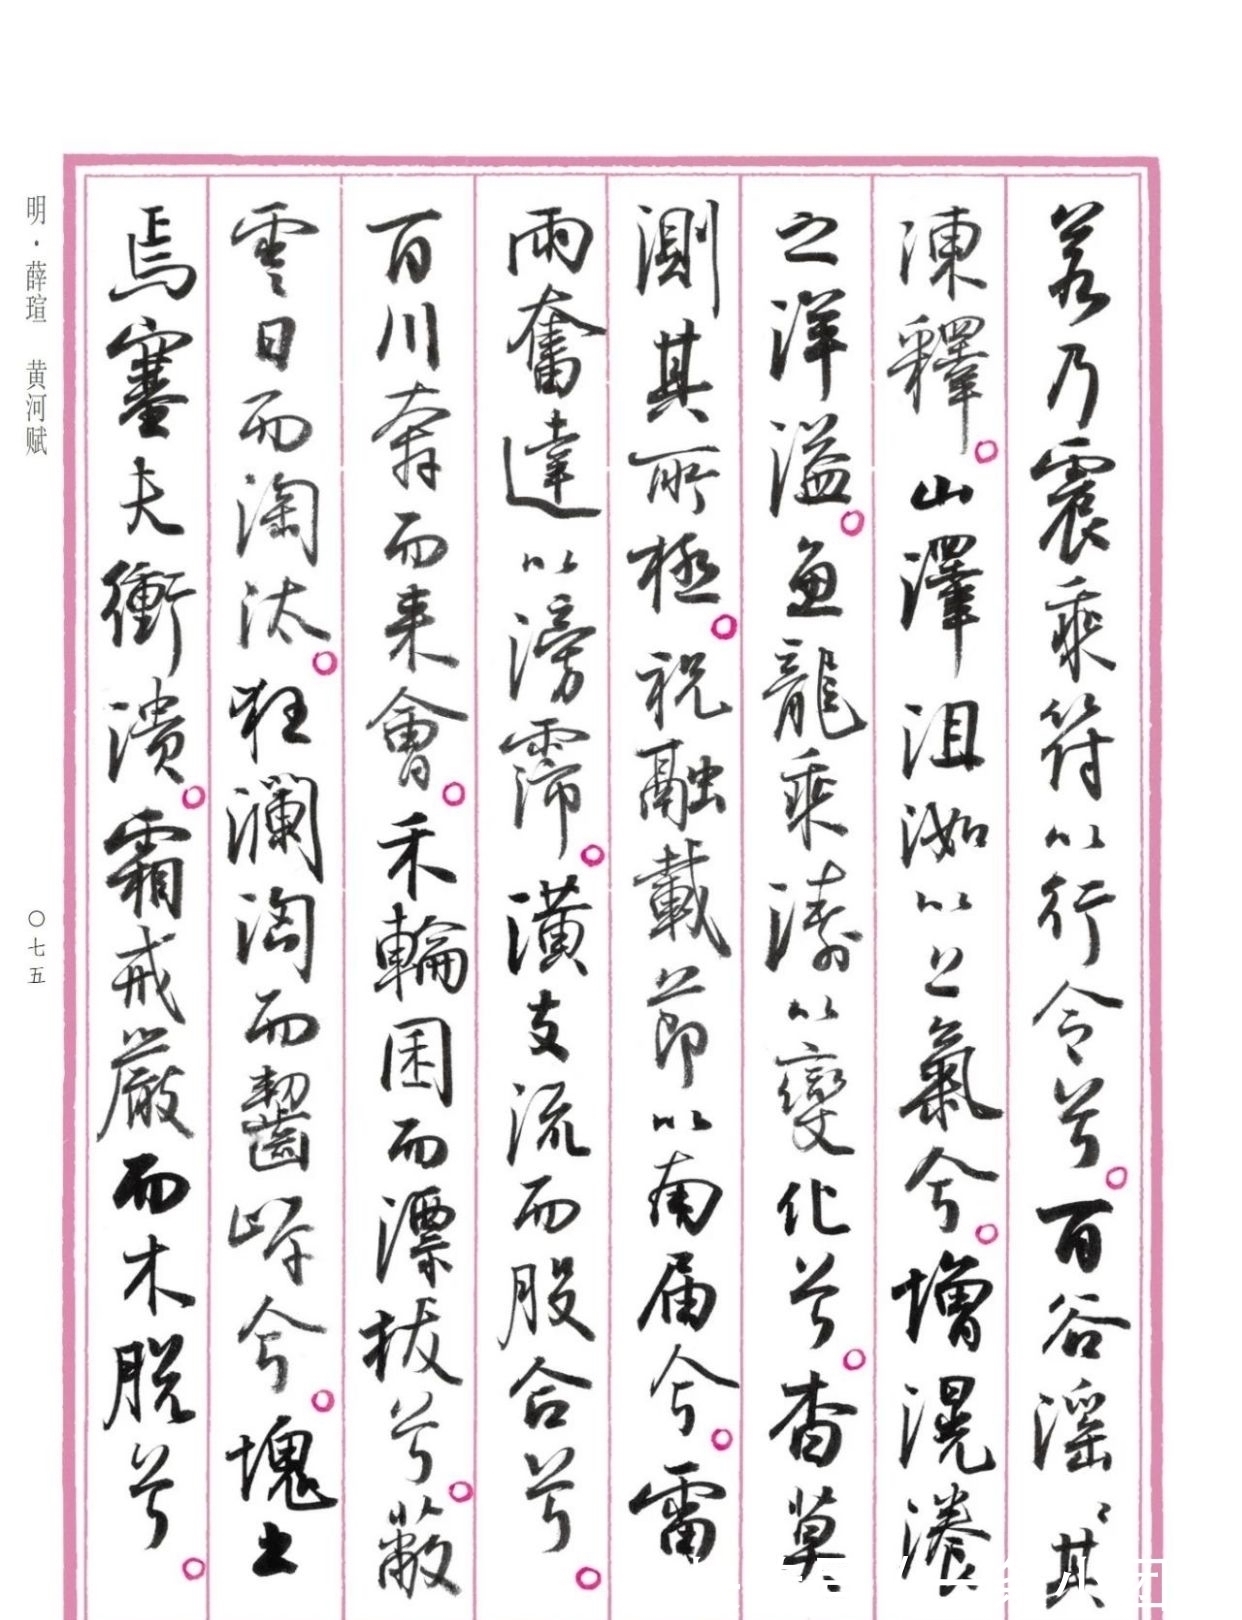 若乃震乘符以行令兮。百谷滛〻其
涷釋。山澤沮洳以上氣兮。增滉瀁
之洋溢。魚龍乘濤以變化兮。杳莫
測其所極。祝融載節以南届兮。雷
雨奮達以滂霈。潢支流而股合兮。
百川奔而来會。禾輪囷而漂拔兮。蔽
雲日而淘汰。狂瀾淘而齧岸兮。塊土
焉塞夫衝潰。霜戒嚴而木脱兮。
明·薛瑄 黄河赋
〇七五